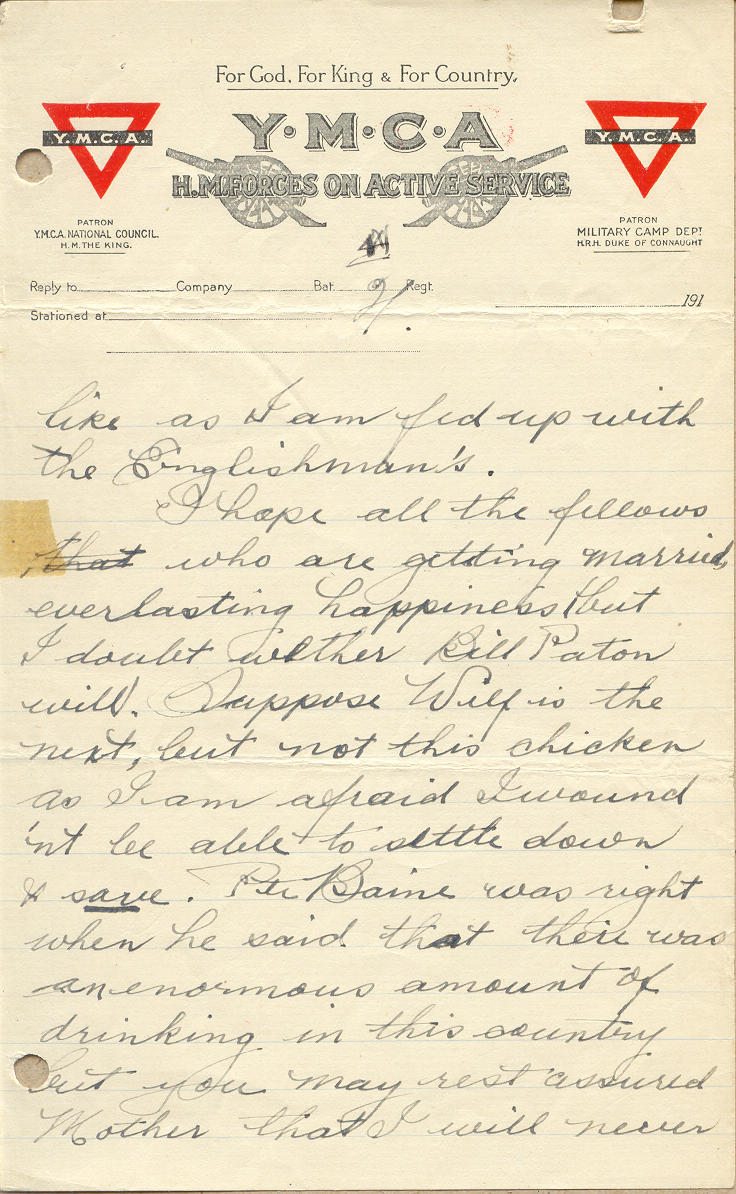 For God, For King & For Country.
Y·M·C·A
H.M. FORCES ON ACTIVE SERVICE
Y.M.C.A.
Y.M.C.A.
PATRON
Y.M.C.A. NATIONAL COUNCIL.
H.M. THE KING.
PATRON
MILITARY CAMP DEPT
H.R.H. DUKE OF CONNAUGHT
Reply to Company Bat. Regt.
191
Stationed at
2/.
like as I am fed up with
the Englishman's.
I hope all the fellows
that who are getting married,
everlasting happiness but
I doubt wether Bill Paton
will. Suppose Wilf is the
next, but not this chicken
as I am afraid I wound
'nt be able to settle down
& save. Baine was right
when he said that their was
an enormous amount of
drinking in this country
but you may rest assured
Mother that I will never